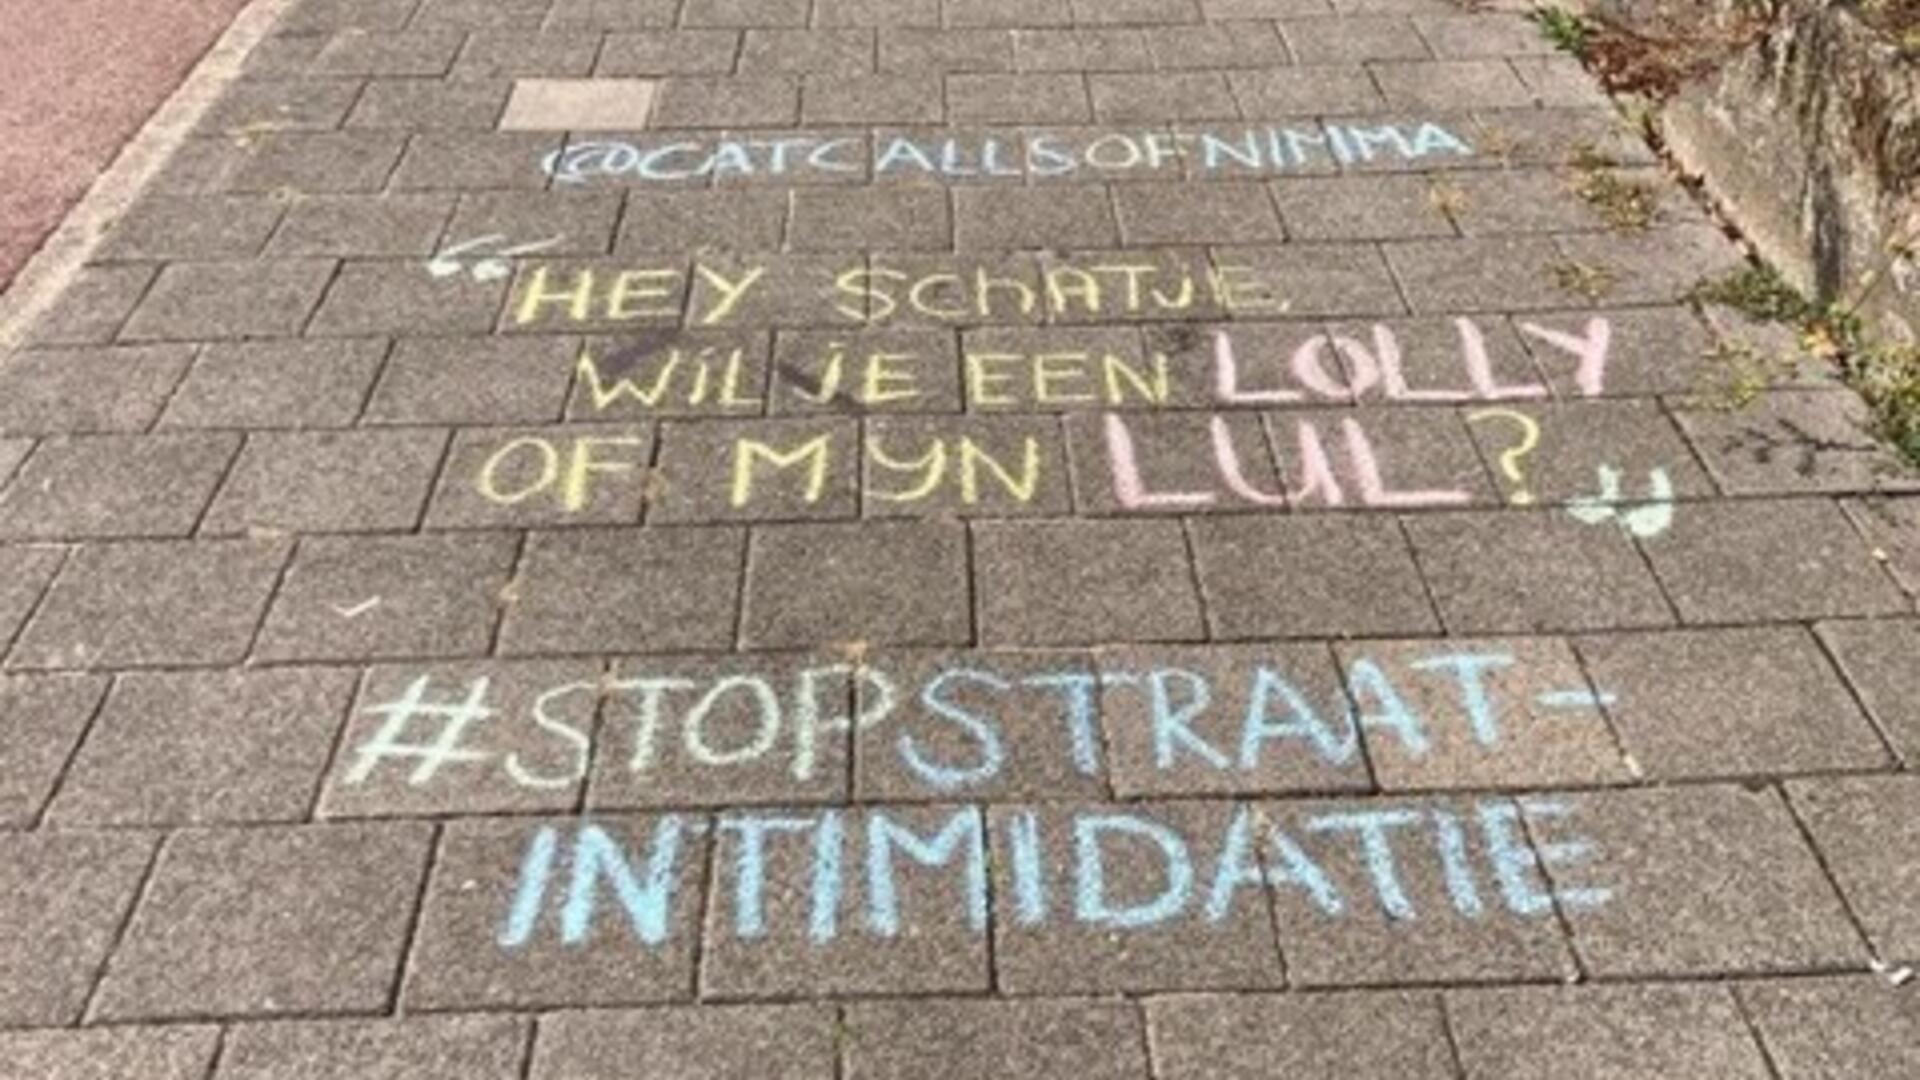 @CATCALLSOFNIMMA
“HEY SCHATJE,
WIL JE EEN LOLLY
OF MYN LUL?”
#STOPSTRAAT-
INTIMIDATIE